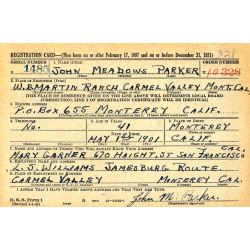 REGISTRATION CARD—(Men born on or after February 17, 1897 and on or before December 31, 1921)
SERIAL NUMBER 1. NAME (Print) ORDER NUMBER
1483 JOHN MEADOWS PARKER 10328
2. PLACE OF RESIDENCE (Print)
W.B MARTIN RANCH CARMEL VALLEY MONT. CAL
[THE PLACE OF RESIDENCE GIVEN ON THE LINE ABOVE WILL DETERMINE LOCAL BOARD
JURISDICTION; LINE 2 OF REGISTRATION CERTIFICATE WILL BE IDENTICAL]
3. MAILING ADDRESS
P.O. BOX 655 MONTEREY CALIF.
4. TELEPHONE 5. AGE IN YEARS 6. PLACE OF BIRTH
No. 41 MONTEREY
DATE OF BIRTH
MAY 1901 CAL
7. NAME AND ADDRESS OF PERSON WHO WILL ALWAYS KNOW YOUR ADDRESS
CAL.
MARY GARNER 670 HAIGHT. ST SAN FRANCISCO
8. EMPLOYER'S NAME AND ADDRESS
L.S. WILLIAMS JAMESBURG ROUTE.
9. PLACE OF EMPLOYMENT OR BUSINESS
CARMEL VALLEY MONTEREY CAL
I AFFIRM THAT I HAVE VERIFIED ABOVE ANSWERS AND THAT THEY ARE TRUE.
D. S. S. Form 1
John M. Parker